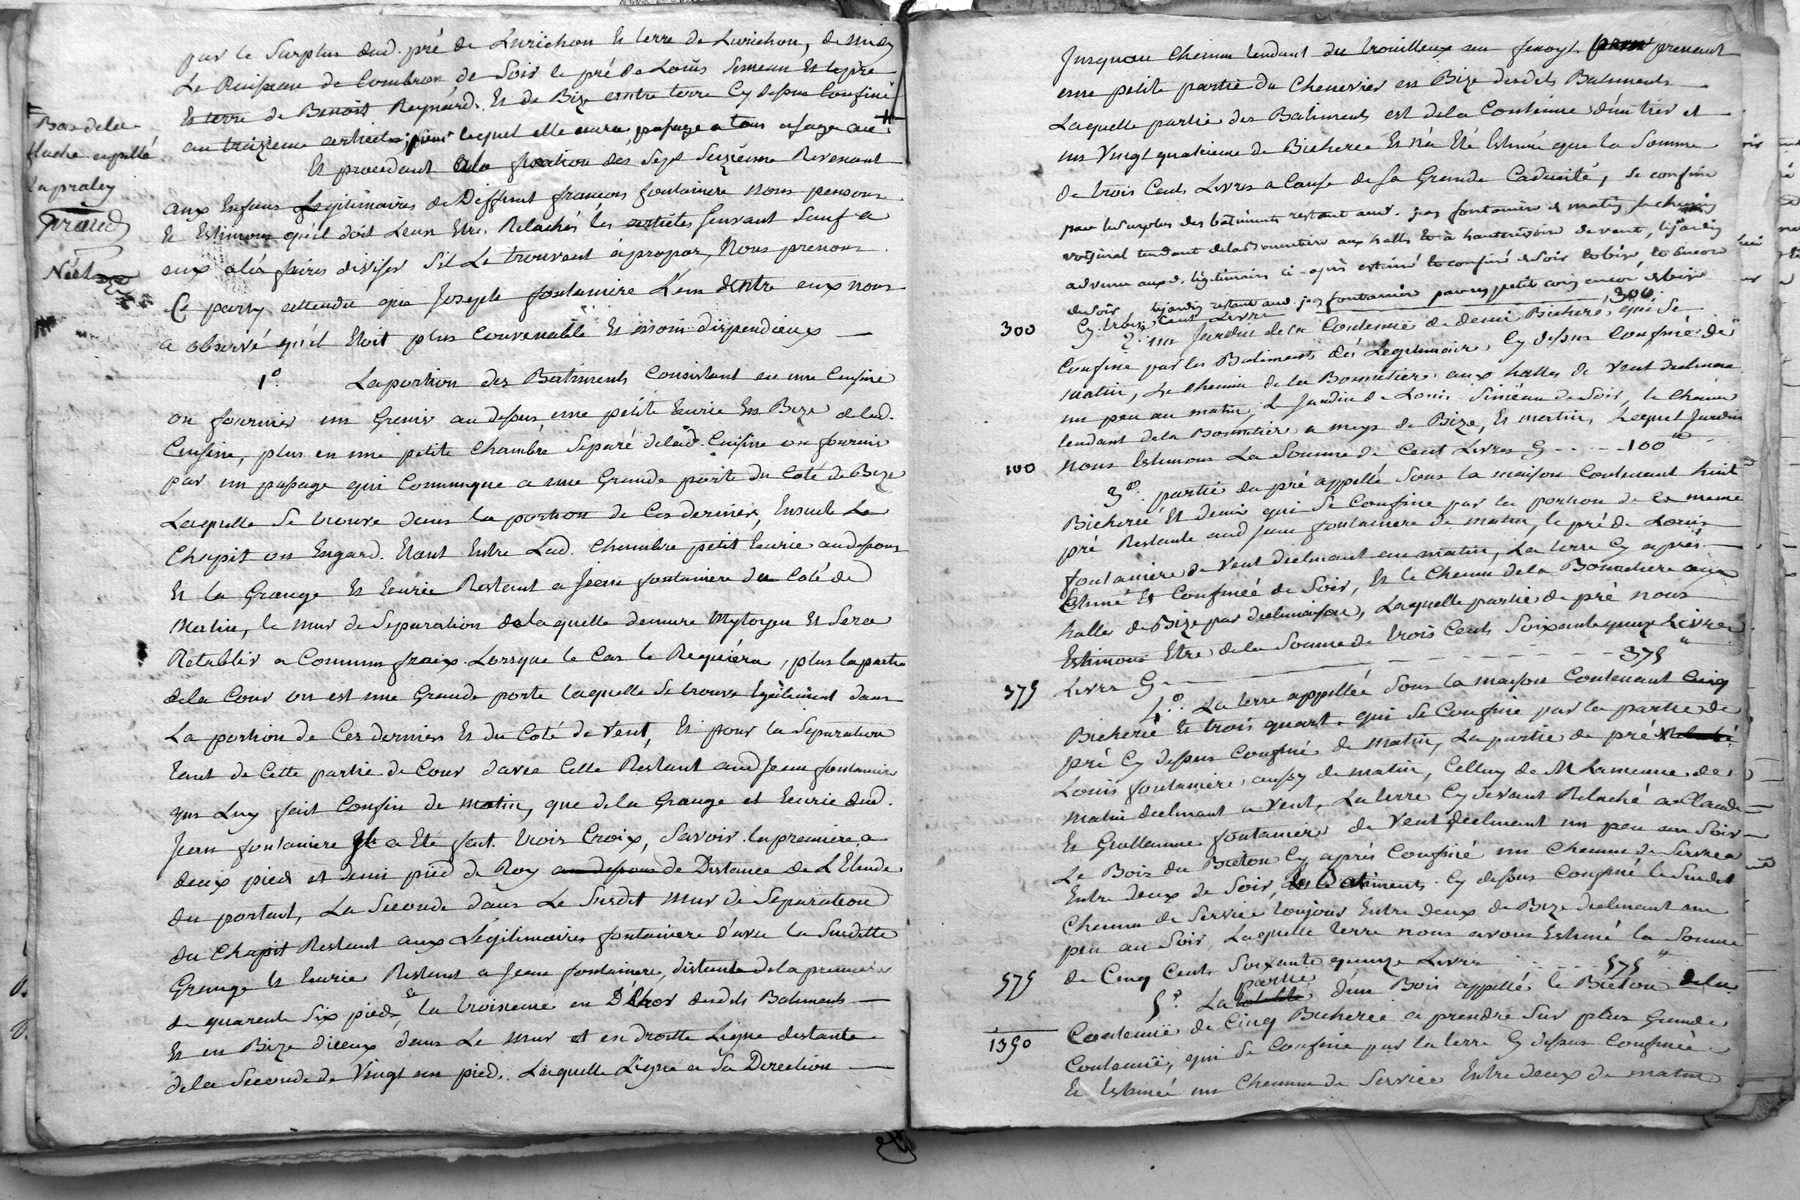 par le Surplus dud. pré de Lurichon Et terre de Lurichon, de midy
Le Ruisseau de Combron, de Soir le pré de Loüis Simean Et le pré
Et terre de Benoit Reynard. Et de Bize entre terre Cy dessus Confiné
au traizieme article, pour lequel elle aura passage a tous usage au
Bas de la
flache appellé
la praley
Giraud
Néel
Et procedant a la fixation des Sept Seizieme Revenant
aux Enfans Légitimaires de Deffunt francois fontainiere nous pensons
Et Estimons qu'il doit Leur Etre Relachés les articles Suivant Sauf a
eux a les faires diviser S'il Le trouvent apropos, Nous prenons
Ce party attendu que Joseph fontainiere L'un d'Entre eux nous
a observé qu'il Etoit plus Convenable Et moin dispendieux
1º. La portion des Batiments Consistant en une Cuisine
ou fournier un Grenier au dessus, une pétite Ecurie En Bize de lad.
Cuisine, plus en une petite Chambre Séparé de lad. Cuisine ou fournier
par un passage qui Comunique a une Grande porte du Coté de Bize
Laquelle Se trouve dans la portion de Ces dernier, Ensuite Le
Chapit ou Engard. Etant Entre Lad. Chambre petit Ecurie au dessous
Et la Grange Et Ecurie Restant a Jean fontainiere du Coté de
Matin, le mur de Separation de laquelle demeure Mytoyen Et Sera
Rétablir a Communs fraix Lorsque le Cas le Requiera, plus la partie
de la Cour ou est une Grande porte laquelle Se trouve Egallement dans
La portion de Ces derniers Et du Coté de Vent, Et pour la Séparation
tant de Cette partie de Cour d'avec Celle Restant aud Jean fontainiere
qui Luy fait Confin de matin, que de la Grange et Ecurie dud.
Jean fontainiere Il a Eté fait trois Croix, Savoir la premiere a
deux pied et demi pied de Roy au dessous de Distance de L'Etude
du portail, La Seconde dans Le Susdit mur de Séparation
du Chapit Restant aux Légitimaires fontainiere d'avec la Susdite
Grange Et Ecurie Restant a Jean fontainiere, distante de la premiere
de quarente Six pieds, Et la troisieme en Dehor desdits Batiments
Et en Bize d'iceux dans Le mur et en droitte Ligne distante
de la Seconde de Vingt un pied. Laquelle Ligne a Sa Direction
Jusqu'au Chemin tendant du trouilleux au prenant
une petite partie du Chenevier en Bize desdits Batiments
Laquelle partie des Batiments est de la Contenue d'un tier et
un Vingt quatrieme de Bicherée Et n'a Eté Estimé que la Somme
de trois Cents Livres a Cause de Sa Grande Caducité, Se confine
pour le Surplus des bâtiments restant aud. jean fontainier de matin le chemin
voisinal tendant de la Bonnetiere aux halles de vent, le jardin
advenu auxd. légitimaires ci-après estimé et confiné de Soir et bise, et encore
de Soir le jardin restant aud. jean fontanier
300 Cy trois Cent Livres 300
2º. un Jardin de la Contenue de demi Bicheré, qui Se
Confine par les Batiments des Legitimaires Cy dessus Confiné de
matin, Le Chemin de la Bonnetiere aux halles de Vent declinant
un peu au matin, Le Jardin de Louis Siméan de Soir, le Chemin
tendant de la Bonnetier a de Bize, Et matin, Lequel Jardin
100 nous Estimons La Somme de Cent Livres Cy 100
3º. partie du pré appellé Sous la maison Contenant huit
Bicherée Et demie qui Se Confine par la portion de Ce meme
pré Restante aud Jean fontainiere de matin, le pré de Louis
fontainiere de Vent declinant au matin, La terre Cy après
Estimé Et Confinée de Soir, Et le Chemin de la Bonnetiere aux
halles de Bize par declinaison, Laquelle partie de pré nous
Estimons Etre de la Somme de trois Cents Soixante quinze Livres
375 Livres Cy 375
4º. La terre appellée Sous la maison Contenant Cinq
Bicherée Et trois quart qui Se Confine par la partie de
pré Cy dessus Confiné de Matin, La partie de pré
Louis fontainiere aussy de matin, Celluy de M Lameune de
Matin declinant a Vent, La terre Cy devant Relaché a Claude
Et Guillaume fontainiere de Vent declinant un peu au Soir
Le Bois du Bieton Cy après Confiné un Chemin de Service
Entre deux de Soir, Les Batiments Cy dessus Confiné le Susdit
Chemin de Service toujour Entre deux de Bize declinant un
peu au Soir, Laquelle terre nous avons Estimé la Somme
575 de Cinq Cents Soixante quinze Livres 575
5º. La partie d'un Bois appellé le Bieton de la
1350
Contenue de Cinq Bicherée a prendre Sur plus Grande
Contenue, qui Se Confine par la terre Cy dessus Confinée
Et Estimée un Chemin de Service Entre deux de matin